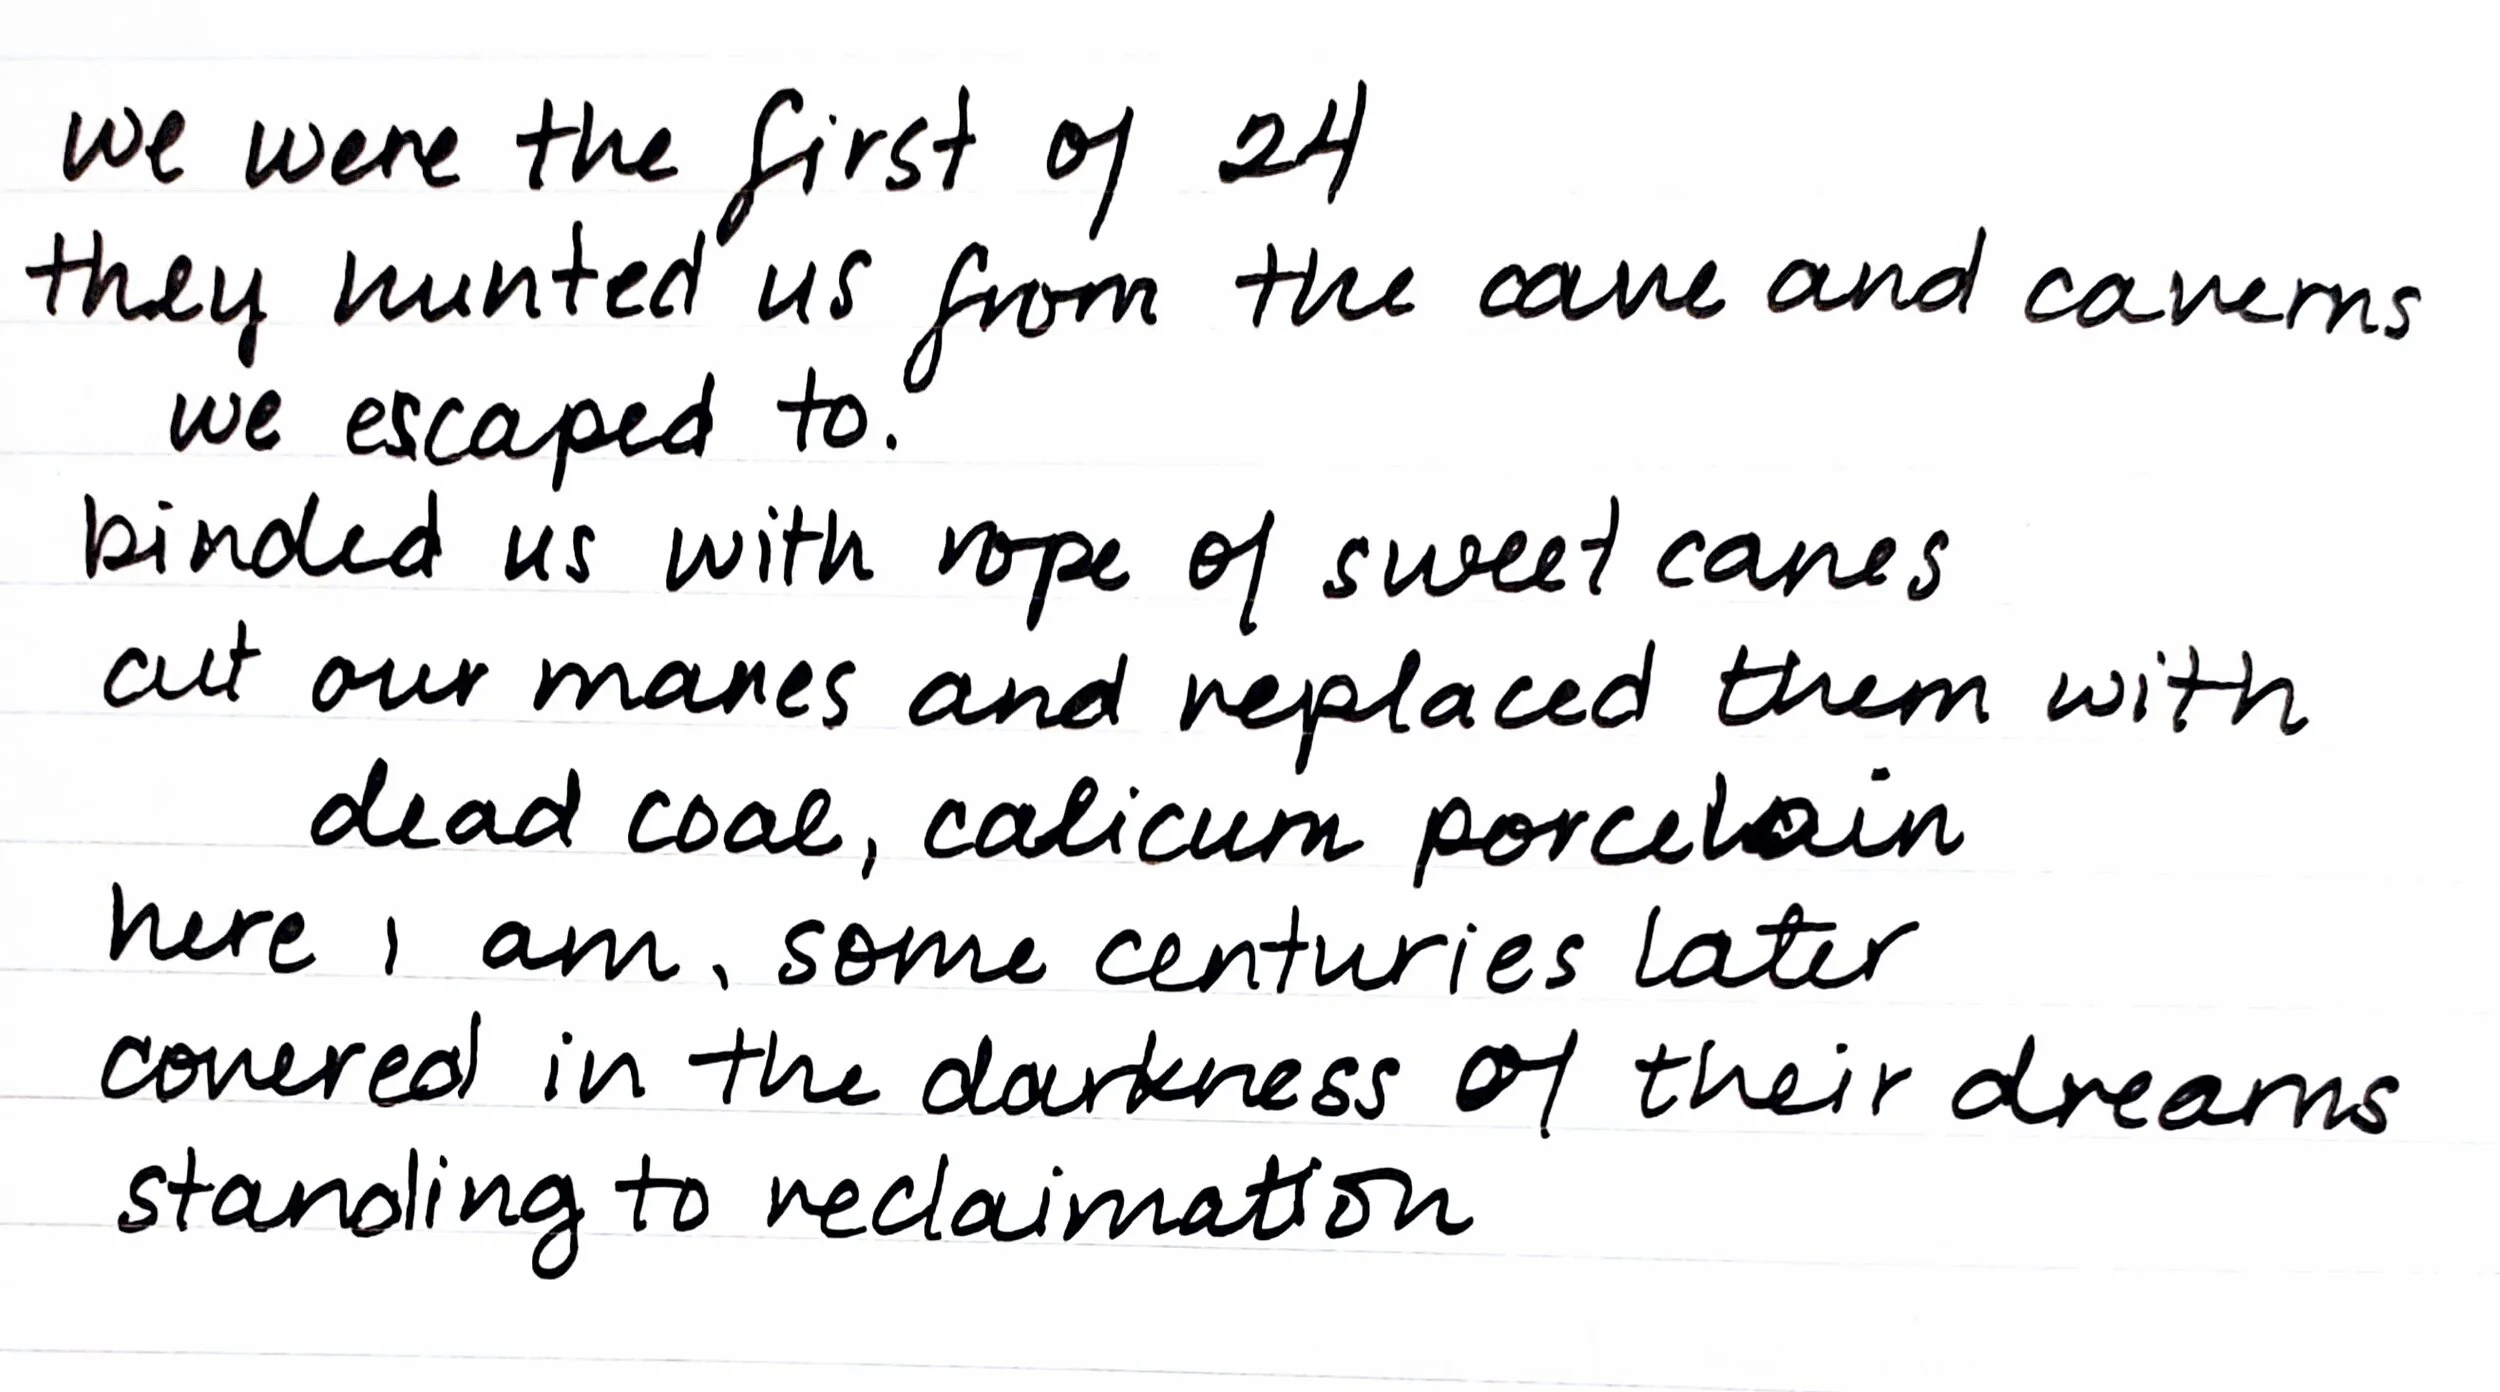 we were the first of 24
they hunted us from the cave and caverns
we escaped to.
binded us with rope of sweet canes
cut our manes and replaced them with
dead coal, calicum porcelain
here i am, some centuries later
covered in the darkness of their dreams
standing to reclaimation